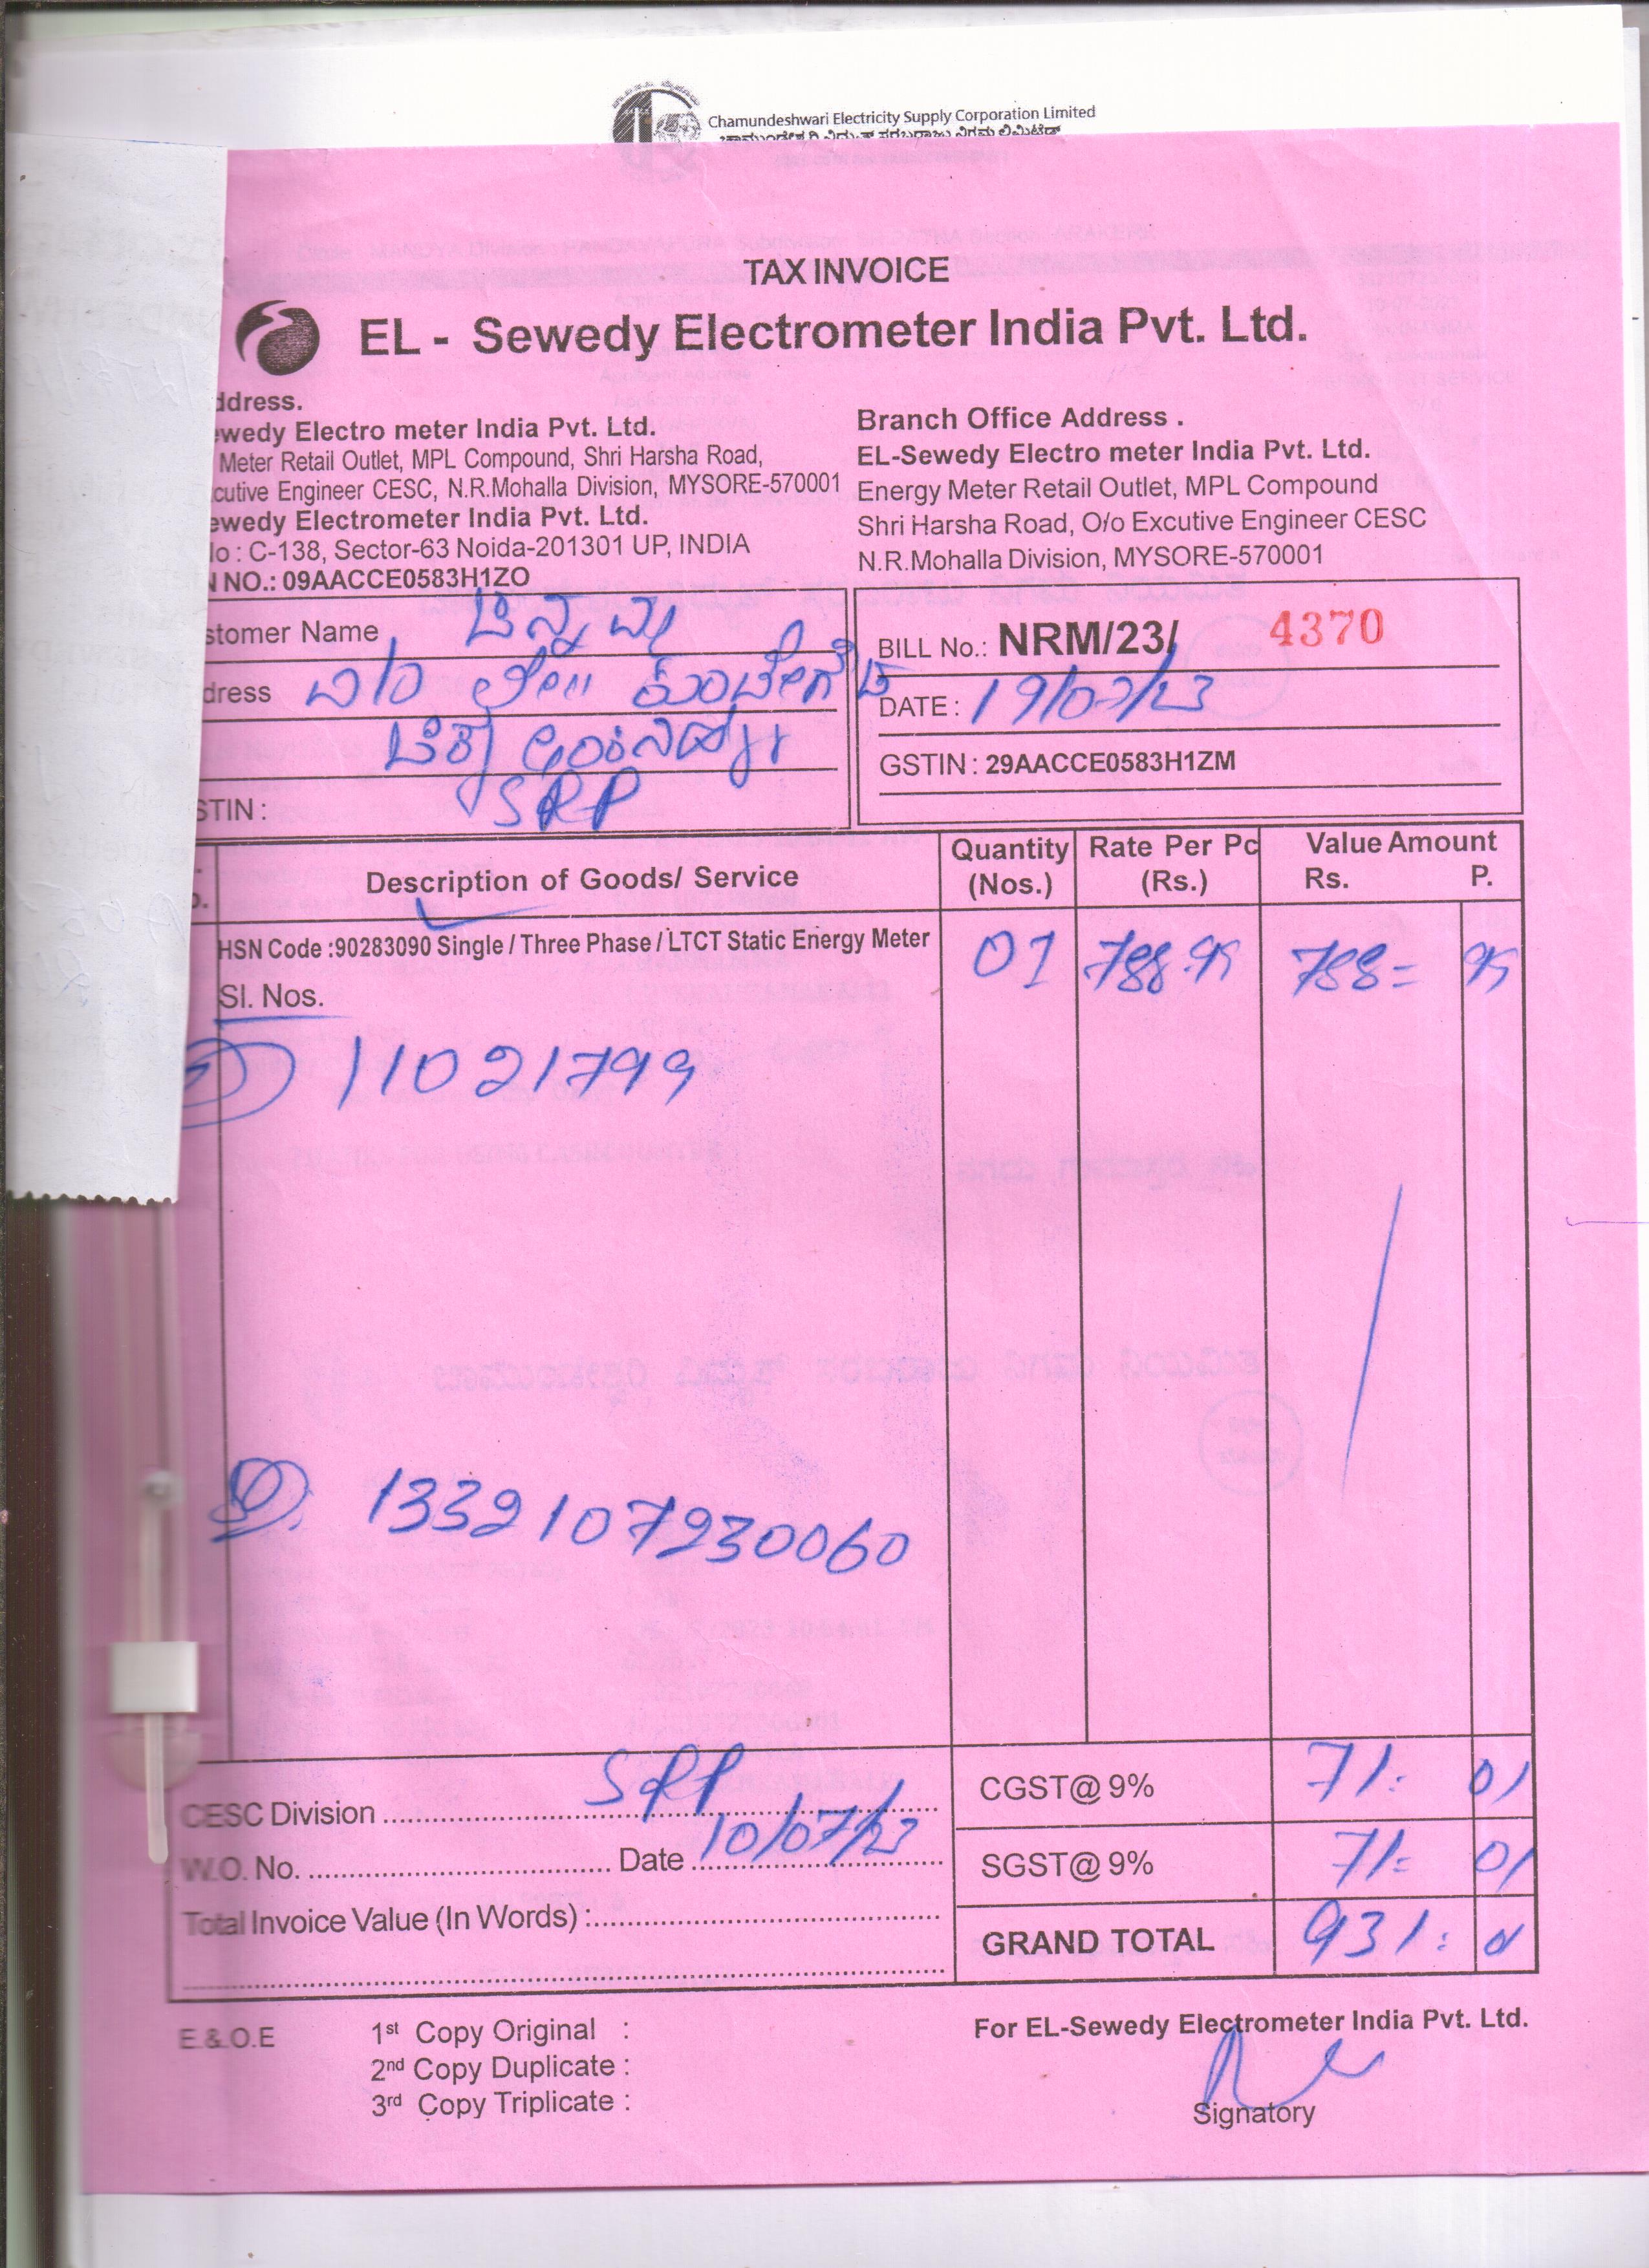 Chamundeshwari Electricity Supply Corporation Limited
ಚಾಮುಂಡೇಶ್ವರಿ ವಿದ್ಯುತ್ ಸರಬರಾಜು ನಿಗಮ ಲಿಮಿಟೆಡ್
TAX INVOICE
EL - Sewedy Electrometer India Pvt. Ltd.
ddress.
ewedy Electro meter India Pvt. Ltd.
Meter Retail Outlet, MPL Compound, Shri Harsha Road,
cutive Engineer CESC, N.R.Mohalla Division, MYSORE-570001
ewedy Electrometer India Pvt. Ltd.
lo : C-138, Sector-63 Noida-201301 UP, INDIA
N NO.: 09AACCE0583H1ZO
Branch Office Address .
EL-Sewedy Electro meter India Pvt. Ltd.
Energy Meter Retail Outlet, MPL Compound
Shri Harsha Road, O/o Excutive Engineer CESC
N.R.Mohalla Division, MYSORE-570001
stomer Name ಚಿನ್ನಮ್ಮ
dress
SRP
STIN :
BILL No.: NRM/23/ 4370
DATE : 19/07/23
GSTIN : 29AACCE0583H1ZM
Description of Goods/ Service
Quantity (Nos.)
Rate Per Pc (Rs.)
Value Amount
Rs. P.
HSN Code :90283090 Single / Three Phase / LTCT Static Energy Meter 01 788.95 788= 95
Sl. Nos.
11021799
1332107230060
CESC Division SRP
W.O. No. Date 10/07/23
Total Invoice Value (In Words) :
CGST@ 9% 71= 01
SGST@ 9% 71= 01
GRAND TOTAL 931=
E.&.O.E
1st Copy Original :
2nd Copy Duplicate :
3rd Copy Triplicate :
For EL-Sewedy Electrometer India Pvt. Ltd.
Signatory